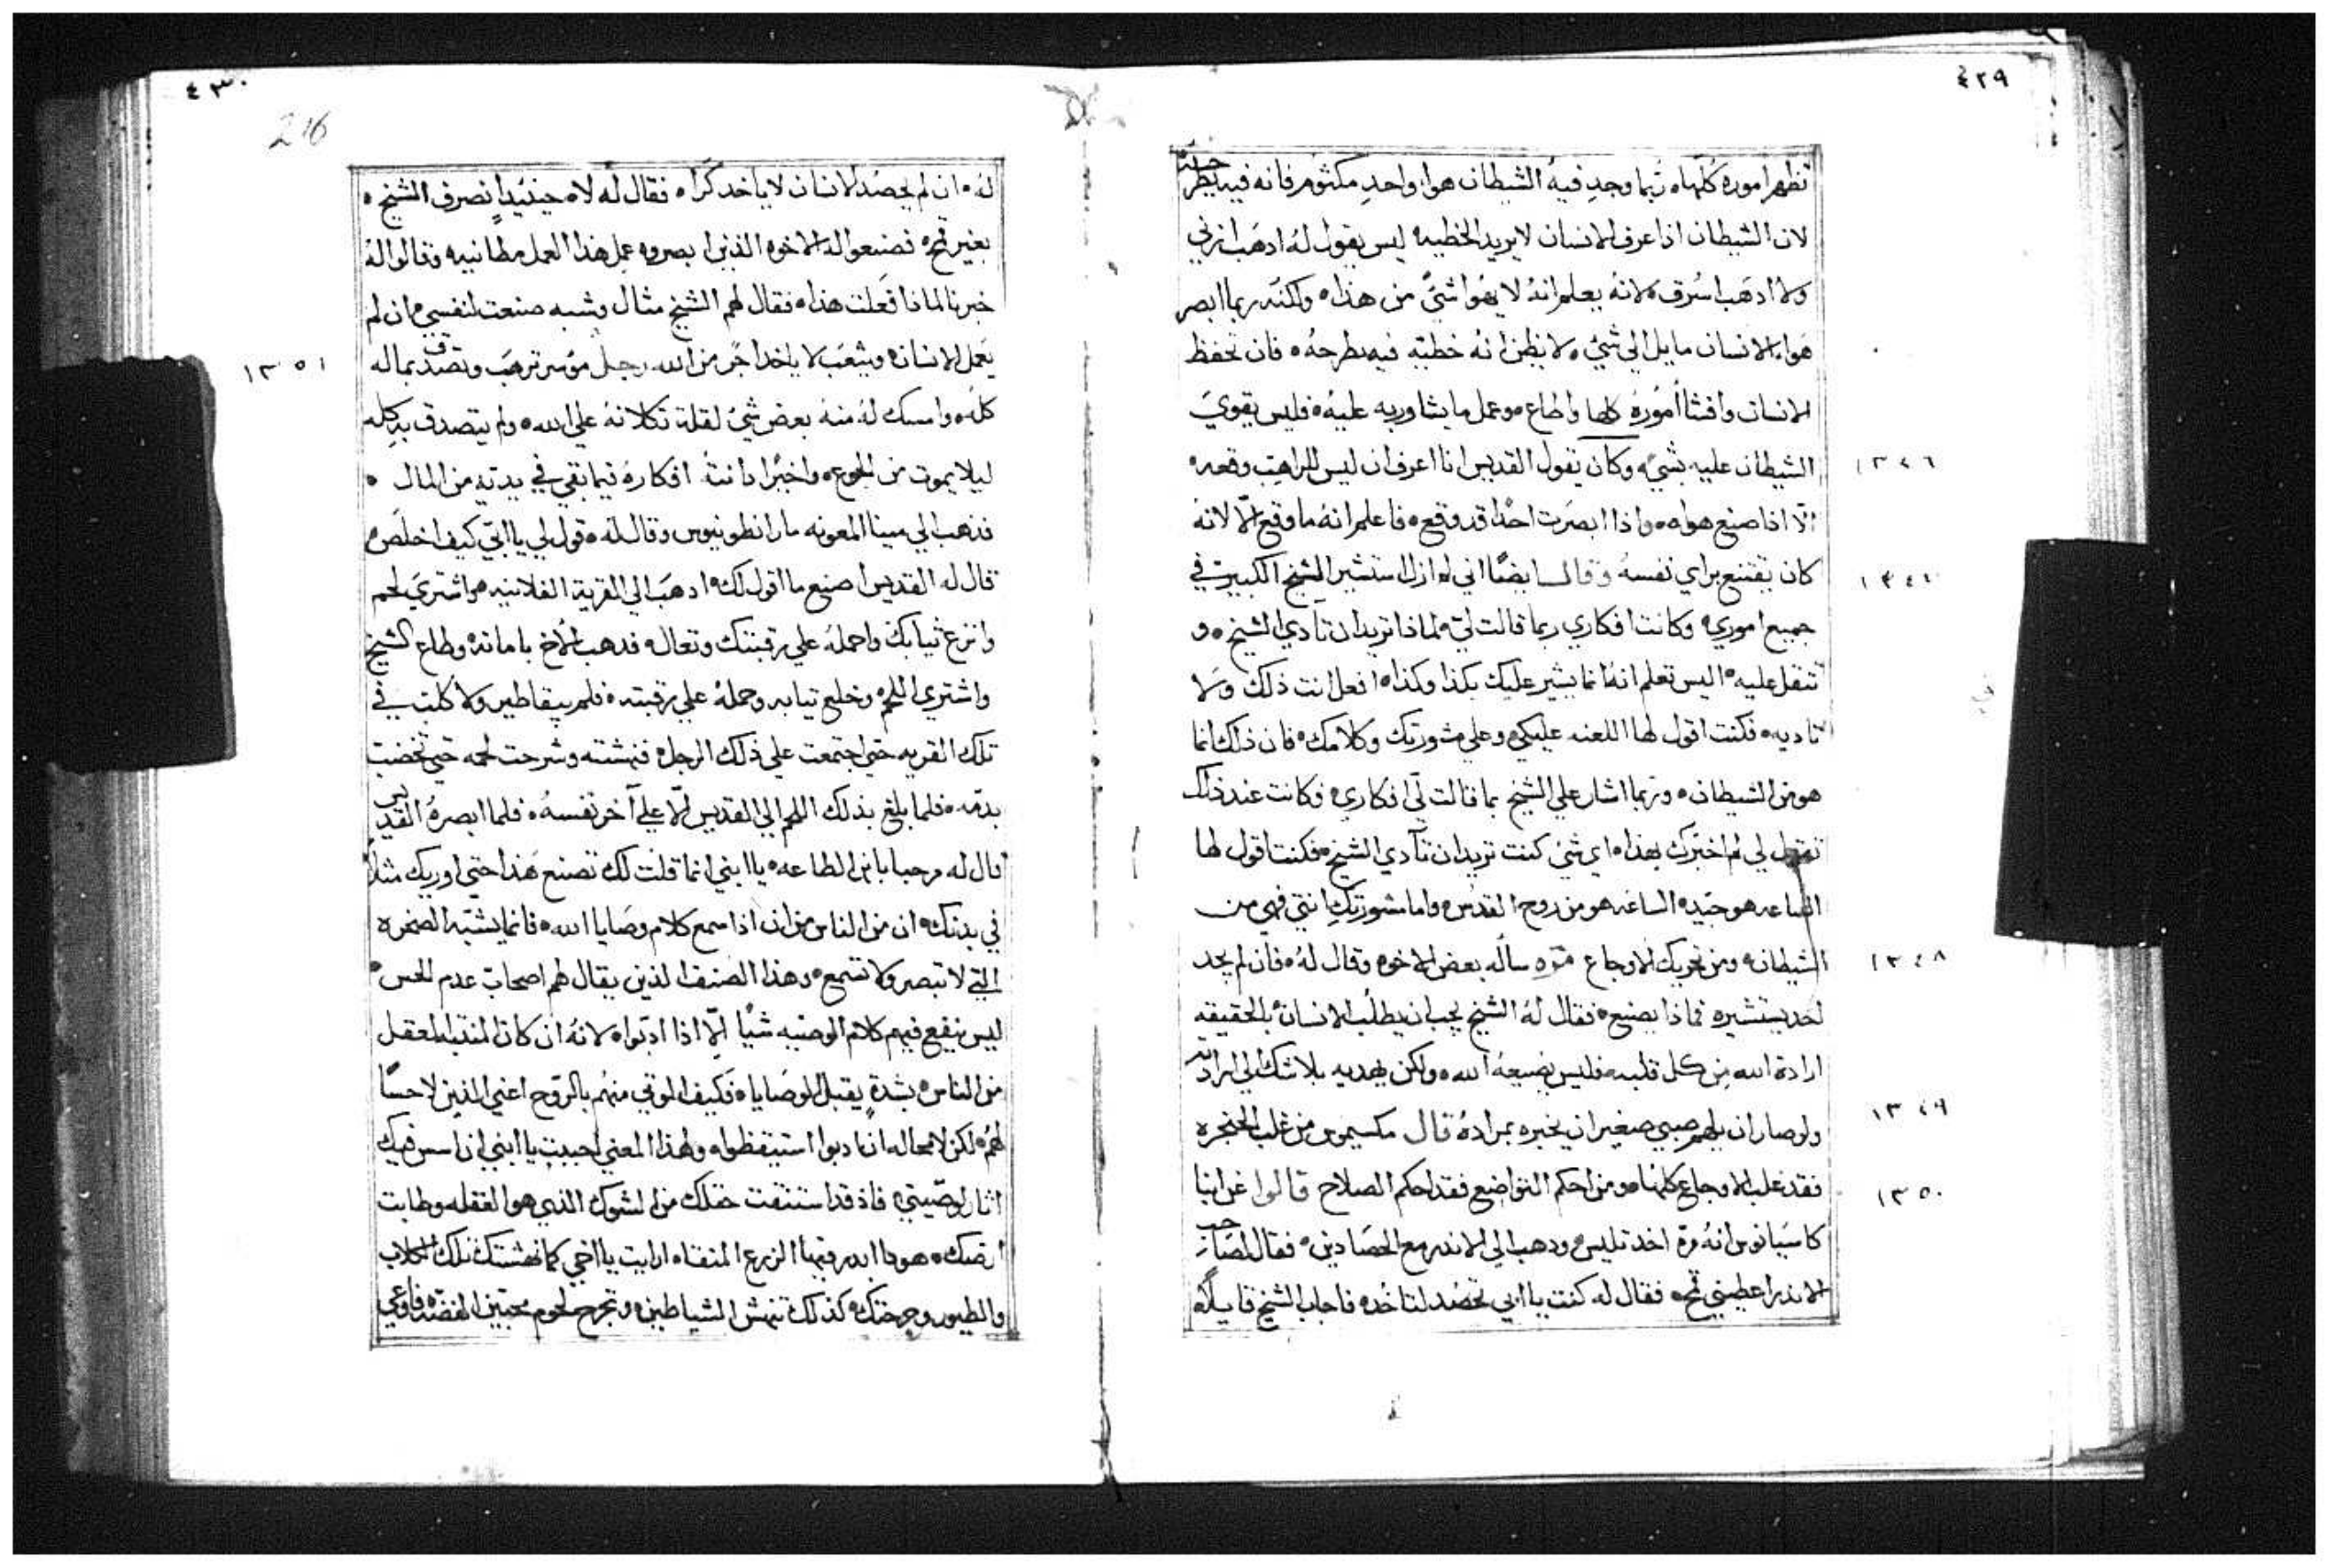 ٤٢٩
تظهر اموره كلها، ربما وجد فيه الشيطان هواء واحد مكتوم فانه فيه يطرحه
لان الشيطان اذا عرف الانسان لا يريد الخطيه ليس يقول له ادهب ازني
ولا ادهب اسرق لانه يعلم انه لا يهوا شي من هذا ه ولكنه ربما ابصر
هواء الانسان مايل الي شي ه لا يظن انه خطيه فيه يطرحه ه فان تحفظ
الانسان وافشا اموره كلها واطاع وعمل ما يشاور به عليه ه فليس يقوي
١٣٤٦
الشيطان عليه بشي ه وكان يقول القديس انا اعرف ان ليس للراهب وقعه
الا اذا صنع هواه ه واذا ابصرت احدا قد وقع ه فاعلم انه ما وقع الا لانه
كان يقتنع براي نفسه وقال ايضا اني لم ازل استشير الشيخ الكبير في
جميع اموري ه وكانت افكاري ربما قالت لي ه لماذا تريد ان تادي الشيخ ه و
تتقل عليه ه اليس تعلم انه انما يشير عليك بكذا وكذا ه افعل انت ذلك ولا
تاديه ه فكنت اقول لها اللعنه عليكي ه وعلي مشورتك وكلامك ه فان ذلك انما
هو من الشيطان ه وربما اشار علي الشيخ بما قالت لي افكاري ه فكانت عند ذلك
تقول لي لم اخبرك بهذا ه اي شي كنت تريد ان تادي الشيخ ه فكنت اقول لها
الساعه هو جيد ه الساعه هو من روح القدس ه واما مشورتك انتي فهي من
١٣٤٨
الشيطان ه ومن تحريك الاوجاع ه ساله بعض الاخوه وقال له ه فان لم يجد
احد يستشيره فماذا يصنع ه فقال له الشيخ يجب ان يطلب الانسان بالحقيقه
ارادة الله من كل قلبه ه فليس يضيعه الله ه ولكن يهديه بلا شك الي ارادته
١٣٤٩
ولو صار ان يلهم صبي صغير ان يخبره بمراده قال مكسيموس من غلب الحنجره
١٣٥٠
فقد غلب الاوجاع كلها ه ومن احكم التواضع فقد احكم الصلاح قالوا عن انبا
كاسيانوس انه مرة اخد تليس ه ودهب الي الاندر مع الحصادين ه فقال لصاحب
الاندر اعطيني قمح ه فقال له كنت يا ابي تحصد لتاخده فاجاب الشيخ قايلا ه
٤٣٠
216
له ه ان لم يحصد الانسان لا ياخد كرا ه فقال له لا ه حينيد انصرف الشيخ ه
بغير قمح ه فصنعوا له الاخوه الذين ابصروه عمل هذا العمل مطانيه وقالوا له
خبرنا لماذا فعلت هذا ه فقال لهم الشيخ مثال وشبه صنعت لنفسي ه ان لم
١٣٥١
يعمل الانسان ه ويتعب لا ياخد اجر من الله رجل موسر ترهب وتصدق بماله
كله ه وامسك له منه بعض شي لقلة تكلانه علي الله ه ولم يتصدق به كله
ليلا يموت من الجوع ه واخيرا اذانته افكاره فيما بقي في يديه من المال ه
فدهب الي مينا المعونه مار انطونيوس وقال له ه قول لي يا ابي كيف اخلص ه
قال له القديس اصنع ما اقول لك ه ادهب الي القرية الفلانيه ه واشتري لحم
وانزع ثيابك واحمله علي رقبتك وتعال ه فدهب الاخ بامانه ه وطاع الشيخ
واشتري اللحم ه وخلع ثيابه وحمله علي رقبته ه فلم يبقا طير ولا كلب في
تلك القريه حتي اجتمعت علي ذلك الرجل ه فنهشته وشرحت لحمه حتي تخضب
بدمه ه فلما بلغ بذلك اللحم الي القديس الا علي آخر نفسه ه فلما ابصره القديس
قال له مرحبا بابن الطاعه ه يا ابني انما قلت لك تصنع هذا حتي اوريك مثلا
في بدنك ه ان من الناس من ان اذا سمع كلام وصايا الله ه فانما يشبه الصخره
التي لا تبصر ولا تسمع ه وهذا الصنف الذين يقال لهم اصحاب عدم الحس ه
ليس ينفع فيهم كلام الوصيه شيا الا اذا ادبوا ه لانه ان كان المنتبه العقل
من الناس ه بشدة يقبل الوصايا ه فكيف الموتي منهم بالروح اعني الذين لا حسا
لهم ه لكن لا محاله ان ادبوا استيقظوا ه ولهذا المعني احببت يا ابني ان اسس فيك
اثار وصيتي ه فاذ قد استنقت حقلك من الشوك الذي هو الغفله وطابت
ارضك ه هوذا ابدر فيها الزرع المنقا ه ارايت يا اخي كما نهشتك تلك الكلاب
والطيور وجرحتك ه كذلك تنهش الشياطين ه وتجرح لحوم محبين الفضه ه